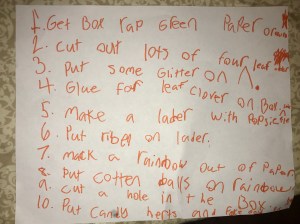 1. Get Box rap Green Paper
2. cut out lots of four leaf
3. Put some Glitter on
4. Glue for leaf clover on Box
5. Make a lader with Popsicle
6. Put riben on lader.
7. mack a rainbow out of Paper.
8. Put cotten balls on rainbow
9. cut a hole in the Box
10. Put candy herts and